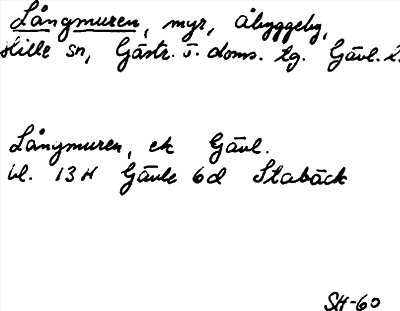 Långmuren, myr, Åbyggeby,
Hille sn, Gästr. ö. doms. tg. Gävl. l.
Långmuren, ek Gävl.
bl. 13H Gävle 6d Stabäck
SH-60